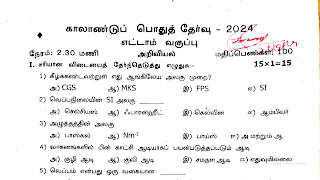 காலாண்டுப் பொதுத் தேர்வு - 2024
எட்டாம் வகுப்பு
நேரம்: 2.30 மணி அறிவியல் மதிப்பெண்கள்: 100
I. சரியான விடையைத் தேர்ந்தெடுத்து எழுதுக:- 15×1=15
1) கீழ்கண்டவற்றுள் எது ஆங்கிலேய அலகு முறை?
அ) CGS ஆ) MKS இ) FPS ஈ) SI
2) வெப்பநிலையின் SI அலகு ______
அ) செல்சியஸ் ஆ) ஃபாரன்ஹீட் இ) கெல்வின் ஈ) ஆம்பியர்
3) அழுத்தத்தின் அலகு
அ) பாஸ்கல் ஆ) Nm⁻² இ) பாய்ஸ் ஈ) அ மற்றும் ஆ
4) வாகனங்களில் பின் காட்சி ஆடியாகப் பயன்படுத்தப்படும் ஆடி
அ) குழி ஆடி ஆ) குவி ஆடி இ) சமதள ஆடி ஈ) எதுவுமில்லை
5) வெப்பம் என்பது ஒரு வகையான ______